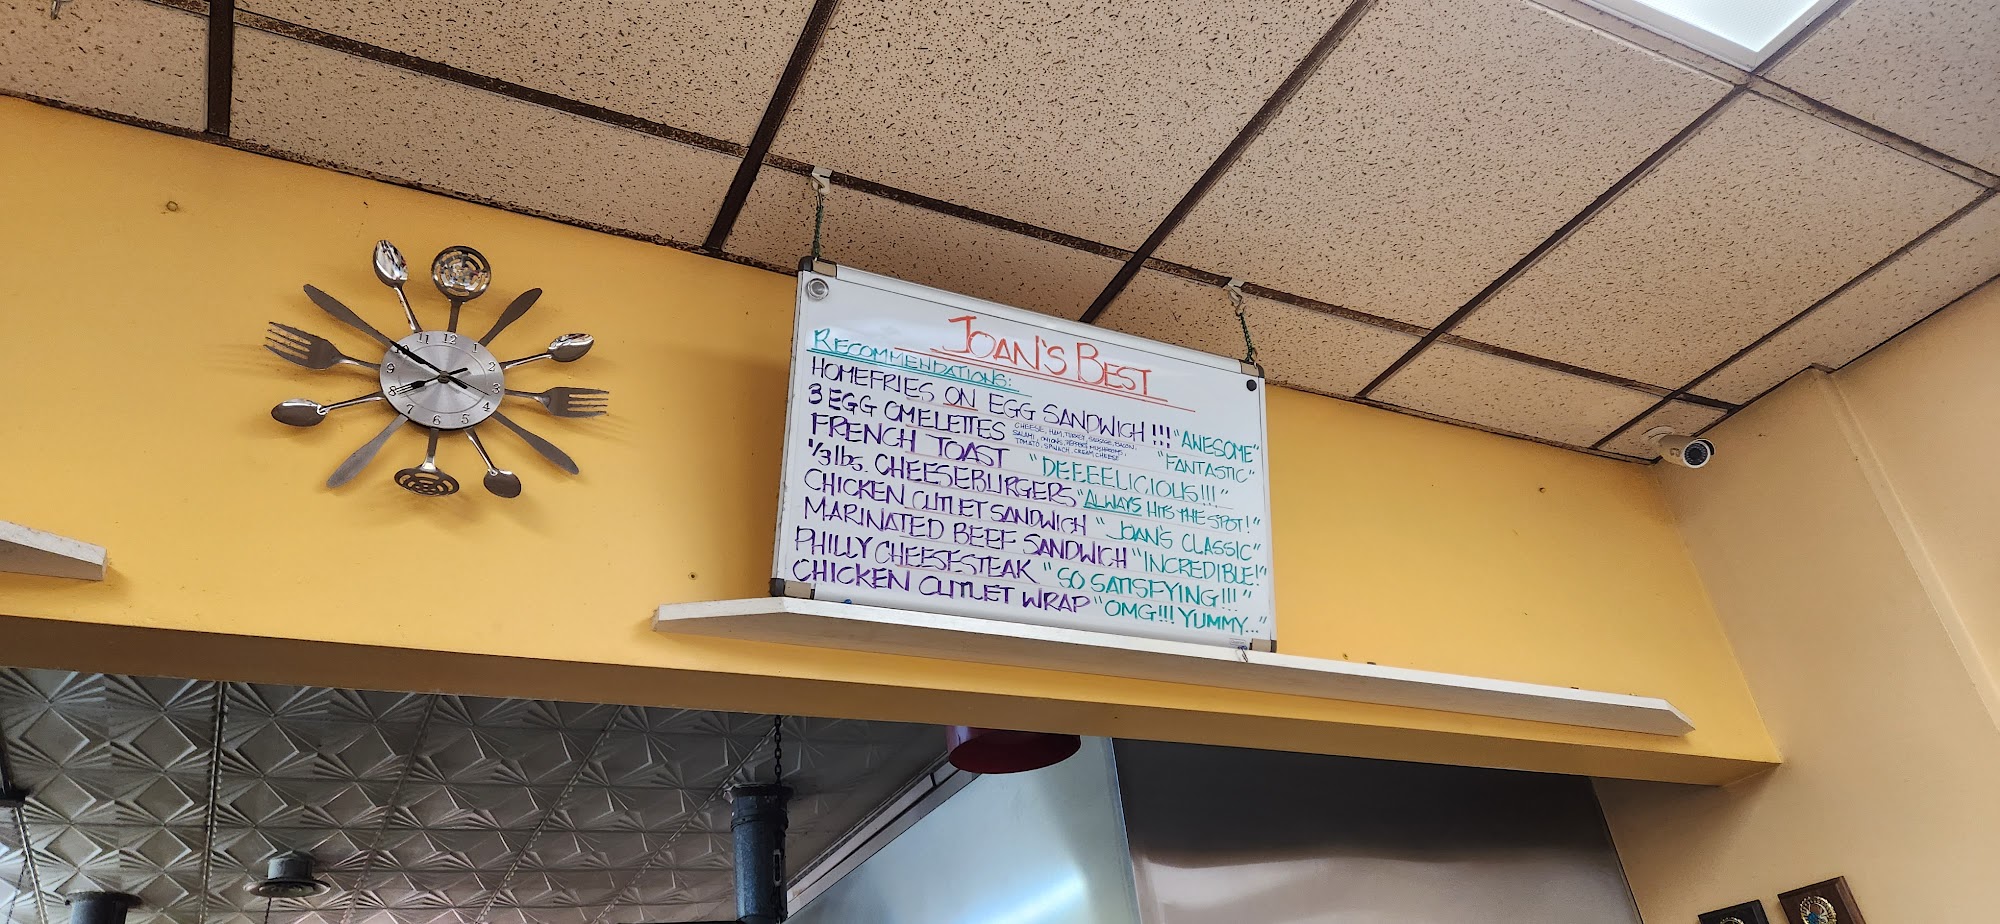 JOAN'S BEST
RECOMMENDATIONS:
HOMEFRIES ON EGG SANDWICH !!! "AWESOME"
3 EGG OMELETTES CHEESE, HAM, TURKEY, SAUSAGE, BACON, "FANTASTIC"
SALAMI, ONIONS, PEPPERS, MUSHROOMS,
TOMATO, SPINACH, CREAM CHEESE
FRENCH TOAST "DEEEELICIOUS!!!"
1/3 lbs. CHEESEBURGERS "ALWAYS HITS THE SPOT!"
CHICKEN CUTLET SANDWICH "JOAN'S CLASSIC"
MARINATED BEEF SANDWICH "INCREDIBLE!"
PHILLY CHEESESTEAK "SO SATISFYING!!!"
CHICKEN CUTLET WRAP "OMG!!! YUMMY..."
11 12 1
10 2
9 3
8 4
7 6 5